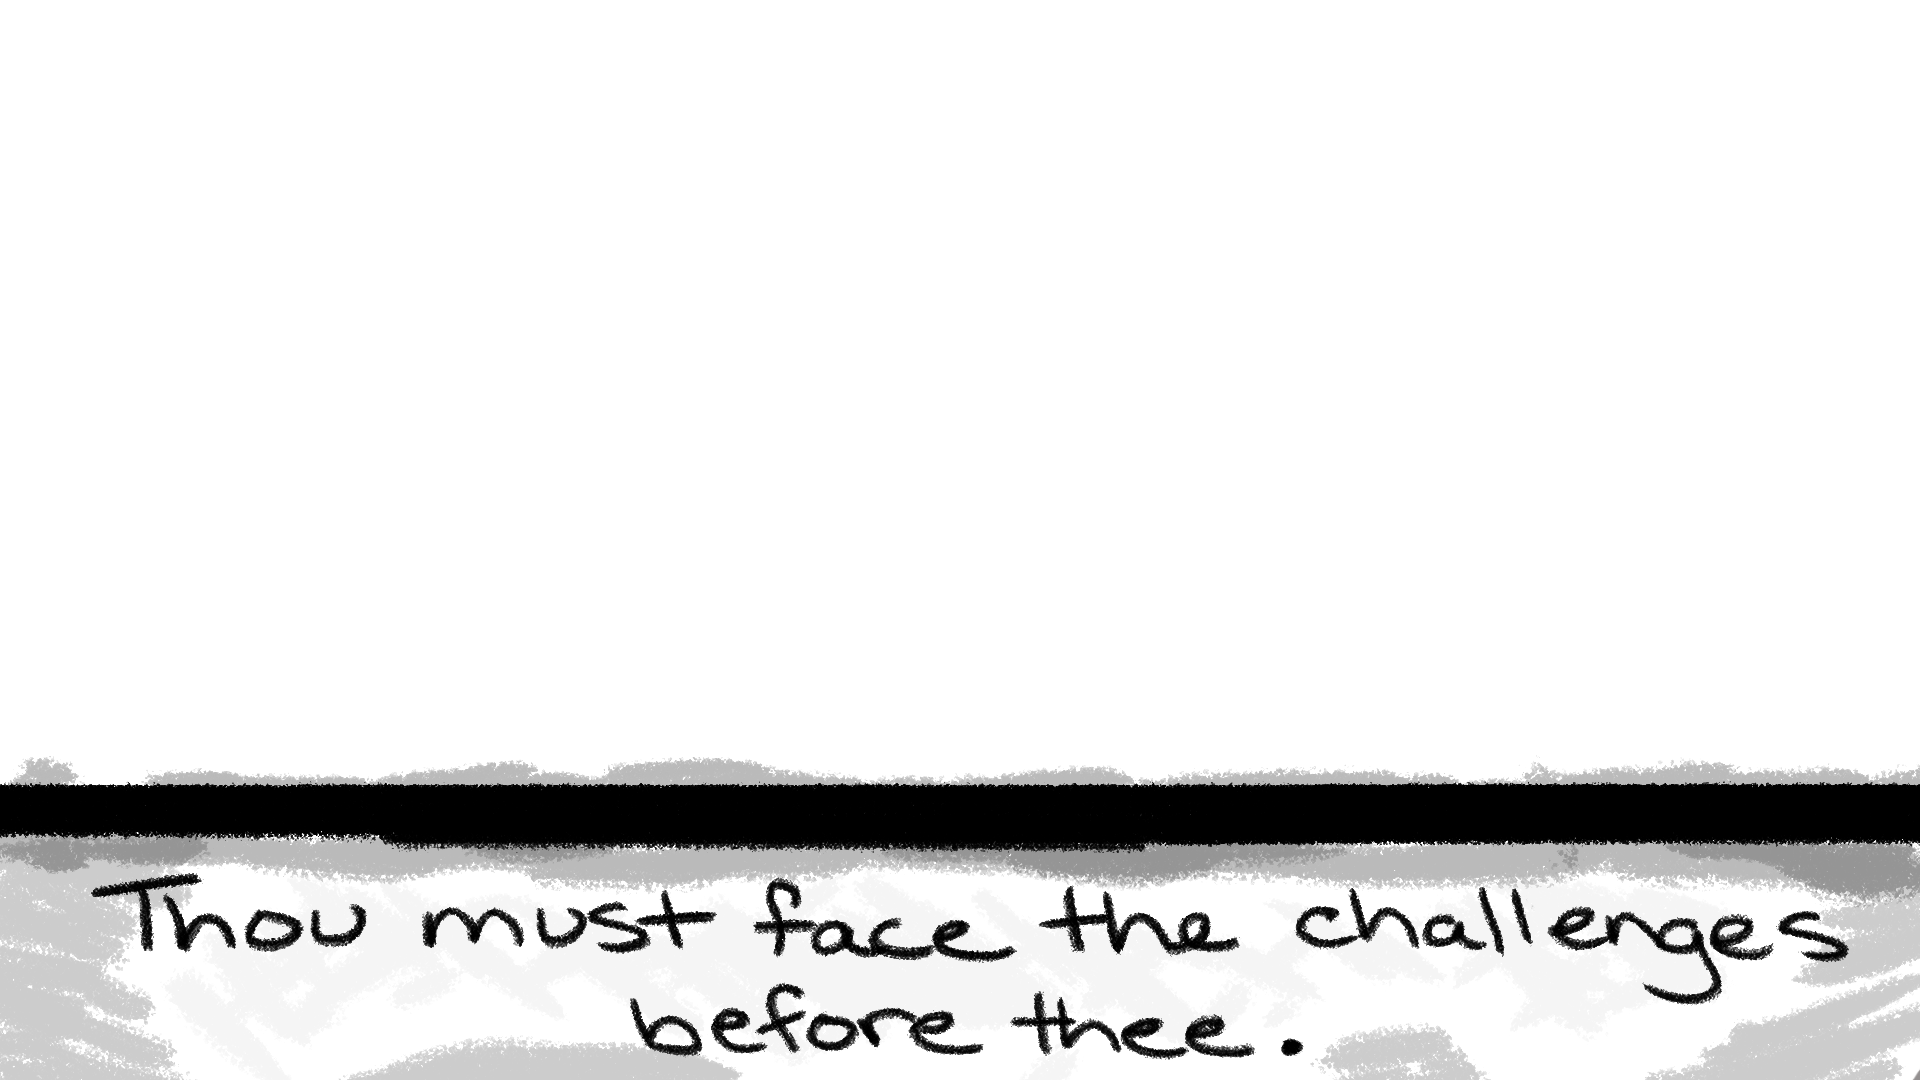 Thou must face the challenges
before thee.